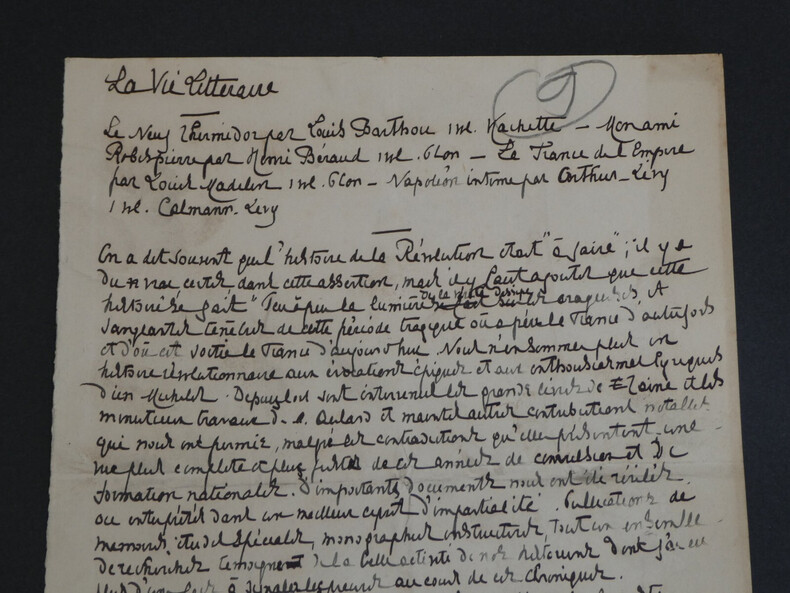 La Vie litteraire
9
Le Neuf Thermidor par Louis Barthou 1 vol. Hachette – Mon ami
Robespierre par Henri Béraud 1 vol. Plon – La France de l'Empire
par Louis Madelin 1 vol. Plon – Napoléon intime par Arthur-Lévy
1 vol. Calmann-Levy
On a dit souvent que l'histoire de la Révolution était "à faire"; il y a
du vrai certes dans cette assertion, mais il y faut ajouter que cette
histoire se fait. Peu à peu la lumière de la vérité descend sur les orageuses et
sanglantes ténèbres de cette période tragique où a péri la France d'autrefois
et d'où est sortie la France d'aujourd'hui. Nous n'en sommes plus en
histoire révolutionnaire aux évocations épiques et aux enthousiasmes lyriques
d'un Michelet. Depuis lors sont intervenus les grands livres de Taine et les
minutieux travaux de M. Aulard et maintes autres contributions notables
qui nous ont permis, malgré les contradictions qu'elles présentent, une
vue plus complète et plus juste de ces années de convulsion et de
formation nationales. D'importants documents nous ont été révélés
ou interprétés dans un meilleur esprit d'impartialité. Publications de
mémoires, études spéciales, monographies instructives, tout un ensemble
de recherches témoignent de la belle activité de nos historiens dont j'ai eu
plus d'une fois à signaler les preuves au cours de ces chroniques.